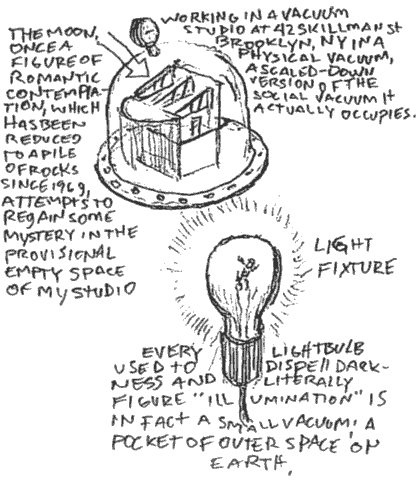 THE MOON,
ONCE A
FIGURE OF
ROMANTIC
CONTEMPLA-
TION, WHICH
HAS BEEN
REDUCED
TO A PILE
OF ROCKS
SINCE 1969,
ATTEMPTS TO
REGAIN SOME
MYSTERY IN THE
PROVISIONAL
EMPTY SPACE
OF MY STUDIO
WORKING IN A VACUUM
STUDIO AT 42 SKILLMAN ST
BROOKLYN, NY IN A
PHYSICAL VACUUM,
A SCALED-DOWN
VERSION OF THE
SOCIAL VACUUM IT
ACTUALLY OCCUPIES.
LIGHT
FIXTURE
EVERY LIGHTBULB
USED TO DISPELL DARK-
NESS AND LITERALLY
FIGURE "ILLUMINATION" IS
IN FACT A SMALL VACUUM: A
POCKET OF OUTER SPACE ON
EARTH.